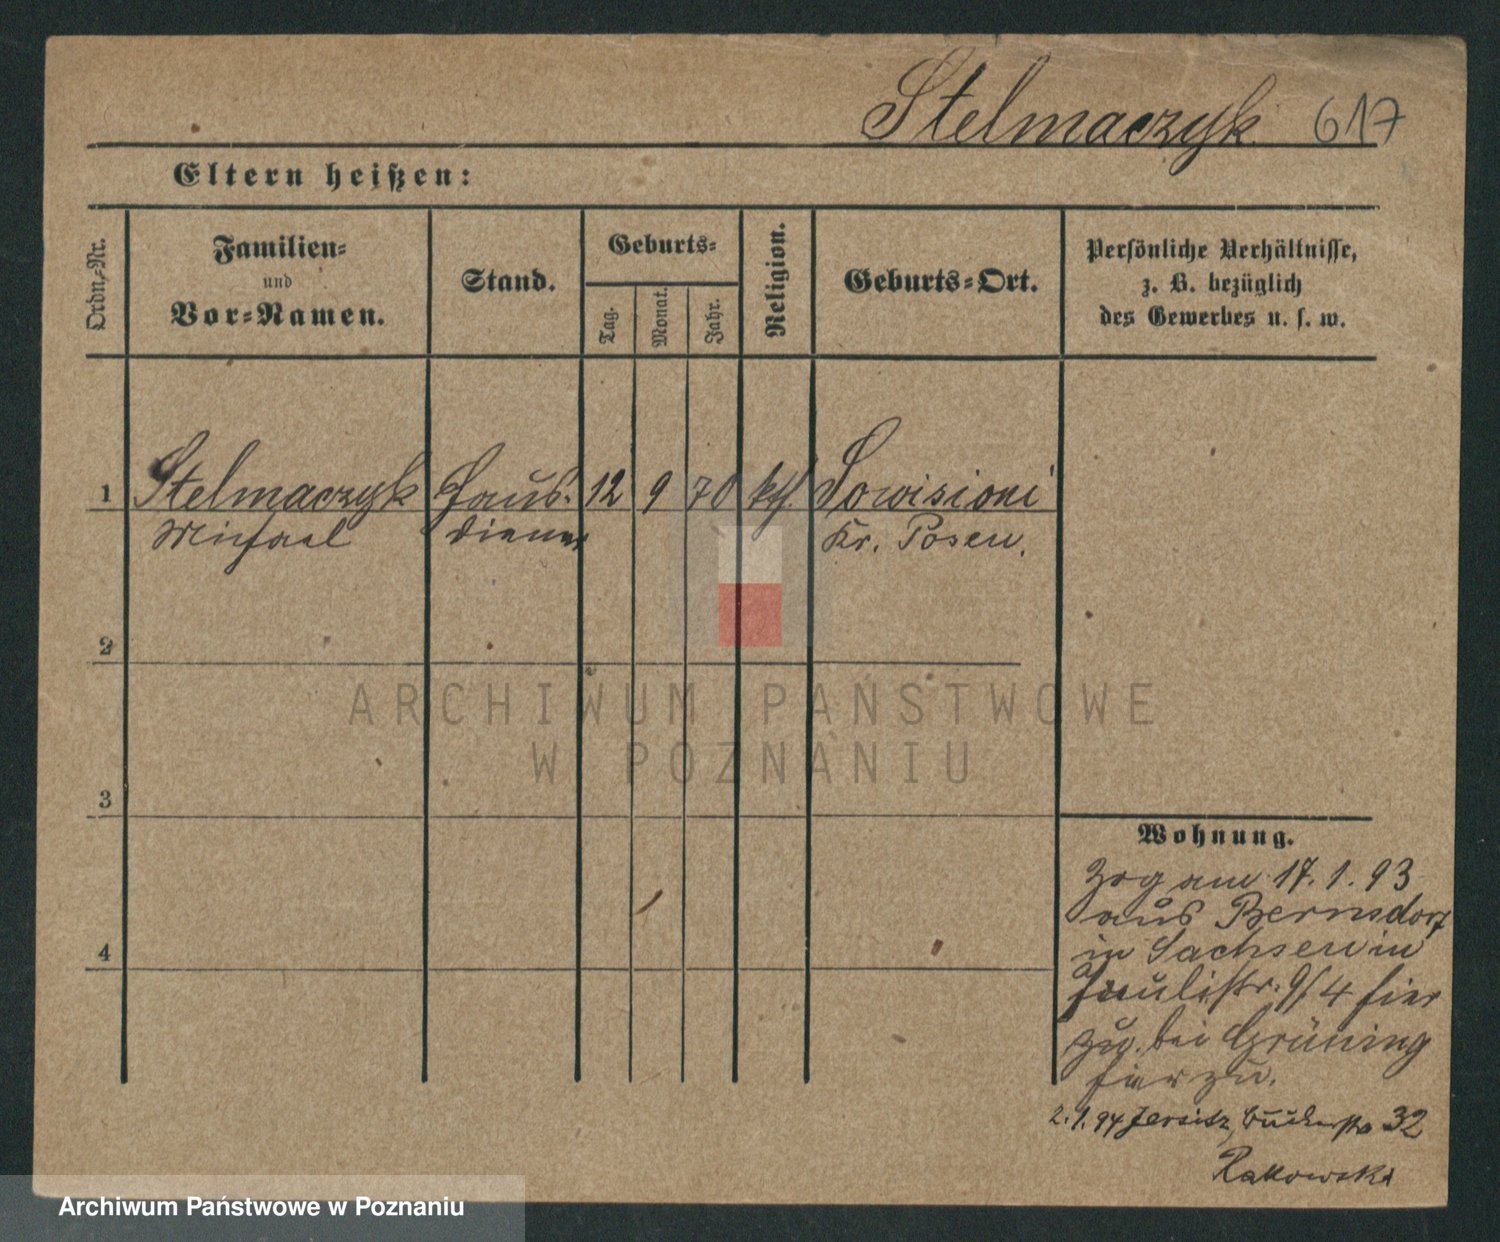 Stelmaczyk 617
Eltern heißen:
Ordn.-Nr.
Familien-
und
Vor-Namen.
Stand.
Geburts-
Tag.
Monat.
Jahr.
Religion.
Geburts-Ort.
Persönliche Verhältnisse,
z. B. bezüglich
des Gewerbes u. s. w.
1 Stelmaczyk Haus- 12 9 70 kth. Sowisioni
Michael diener Kr. Posen.
2
3
4
Wohnung.
Zog am 17.1.93
aus Bernsdorf
in Sachsen in
Paulistr. 9/4 hier
zu. bei Grüning
hier zu.
2.1.94 Jersitz, 32
Rakowski
ARCHIWUM PAŃSTWOWE
W POZNANIU
Archiwum Państwowe w Poznaniu